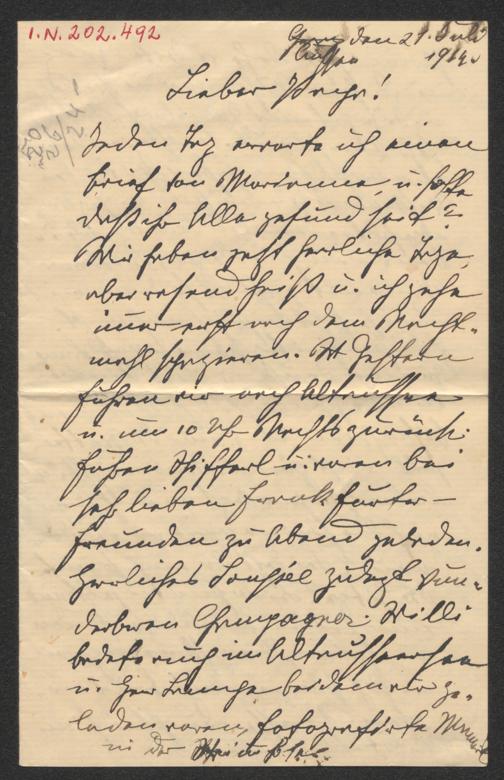 I.N. 202.492
den 21. Juli
1914.
Lieber
Jeden Tag erwarte ich einen
Brief von Marianne, u. hoffe
daß ihr Alle gesund seid?
Wir haben jetzt herrliche Tage,
aber rasend heiß u. ich gehe
immer erst nach dem Nacht-
mahl spazieren. Gestern
fuhren wir nach Altaussee
u. um 10 Uhr Nachts zurück.
fuhren Schifferl u. waren bei
sehr lieben Frankfurter-
freunden zu Abend geladen.
Herrliches Souper
Champagner. Willi
badete auch im Altausseersee
u. Herr bei dem wir ge-
laden waren, fotografirte
in der